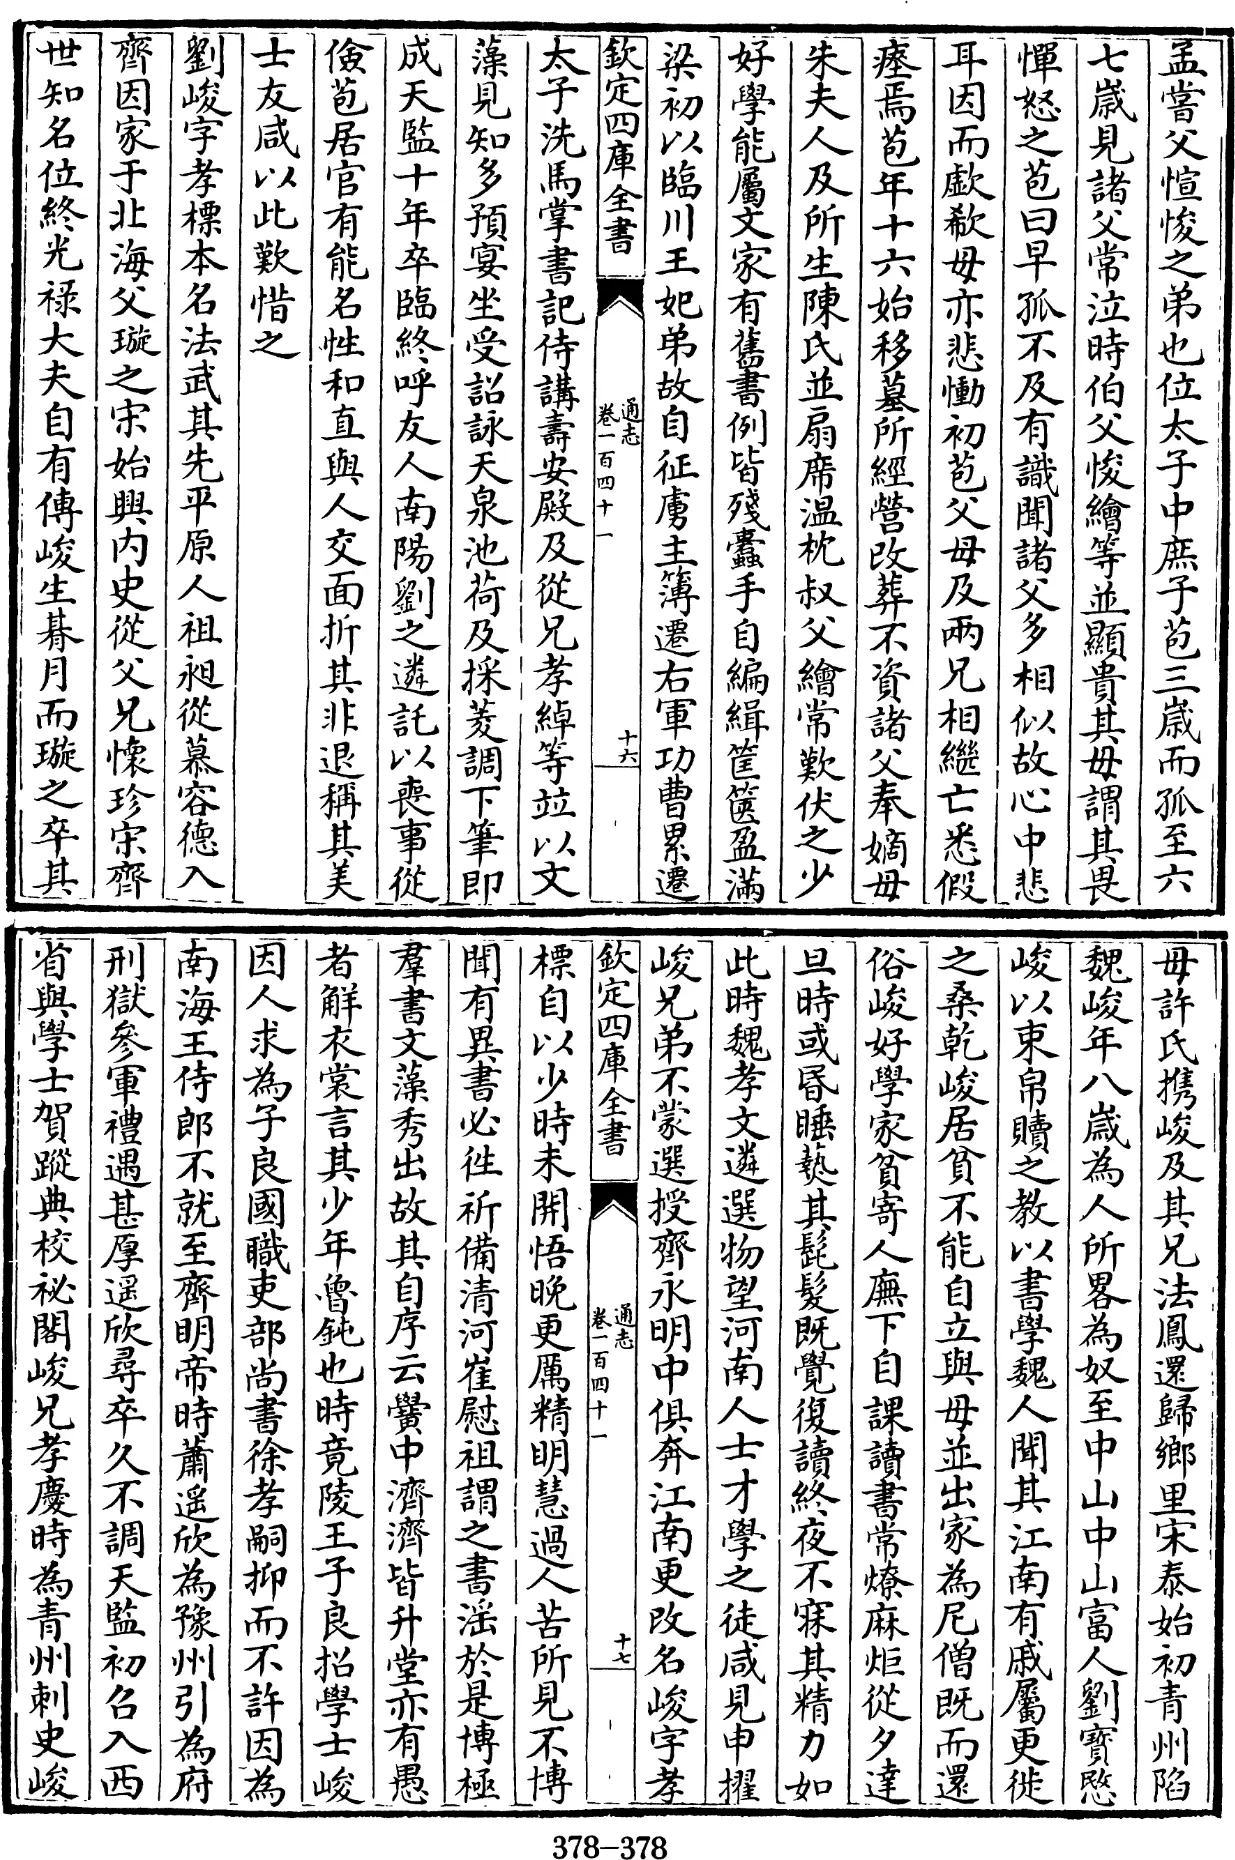 孟嘗父愃悛之弟也位太子中庶子苞三歳而孤至六
七歳見諸父常泣時伯父悛繪等並顯貴其母謂其畏
憚怒之苞曰早孤不及有識聞諸父多相似故心中悲
耳因而歔欷母亦悲慟初苞父母及兩兄相繼亡悉假
瘞焉苞年十六始移墓所經營改葬不資諸父奉嫡母
朱夫人及所生陳氏並扇席温枕叔父繪常歎伏之少
好學能屬文家有舊書例皆殘蠹手自編緝筐篋盈滿
梁初以臨川王妃弟故自征虜主簿遷右軍功曹累遷
欽定四庫全書
通志
卷一百四十一
十六
太子洗馬掌書記侍講壽安殿及從兄孝綽等竝以文
藻見知多預宴坐受詔詠天泉池荷及採菱調下筆即
成天監十年卒臨終呼友人南陽劉之遴託以喪事從
儉苞居官有能名性和直與人交面折其非退稱其美
士友咸以此歎惜之
劉峻字孝標本名法武其先平原人祖昶從慕容德入
齊因家于北海父璇之宋始興内史從父兄懷珍宋齊
世知名位終光禄大夫自有傳峻生朞月而璇之卒其
母許氏携峻及其兄法鳳還歸鄉里宋泰始初青州陷
魏峻年八歳為人所畧為奴至中山中山富人劉寳愍
峻以束帛贖之教以書學魏人聞其江南有戚屬更徙
之桑乾峻居貧不能自立與母並出家為尼僧既而還
俗峻好學家貧寄人廡下自課讀書常燎麻炬從夕達
旦時或昬睡爇其髭髮既覺復讀終夜不寐其精力如
此時魏孝文選物望河南人士才學之徒咸見申擢
峻兄弟不蒙選授齊永明中俱奔江南更改名峻字孝
欽定四庫全書
通志
卷一百四十一
十七
標自以少時未開悟晚更厲精明慧過人苦所見不博
聞有異書必徃祈備清河崔慰祖謂之書淫於是博極
羣書文藻秀出故其自序云黌中濟濟皆升堂亦有愚
者解衣裳言其少年魯鈍也時竟陵王子良招學士峻
因人求為子良國職吏部尚書徐孝嗣抑而不許因為
南海王侍郎不就至齊明帝時蕭遥欣為豫州引為府
刑獄參軍禮遇甚厚遥欣尋卒久不調天監初召入西
省與學士賀蹤典校祕閣峻兄孝慶時為青州刺史峻
378-378